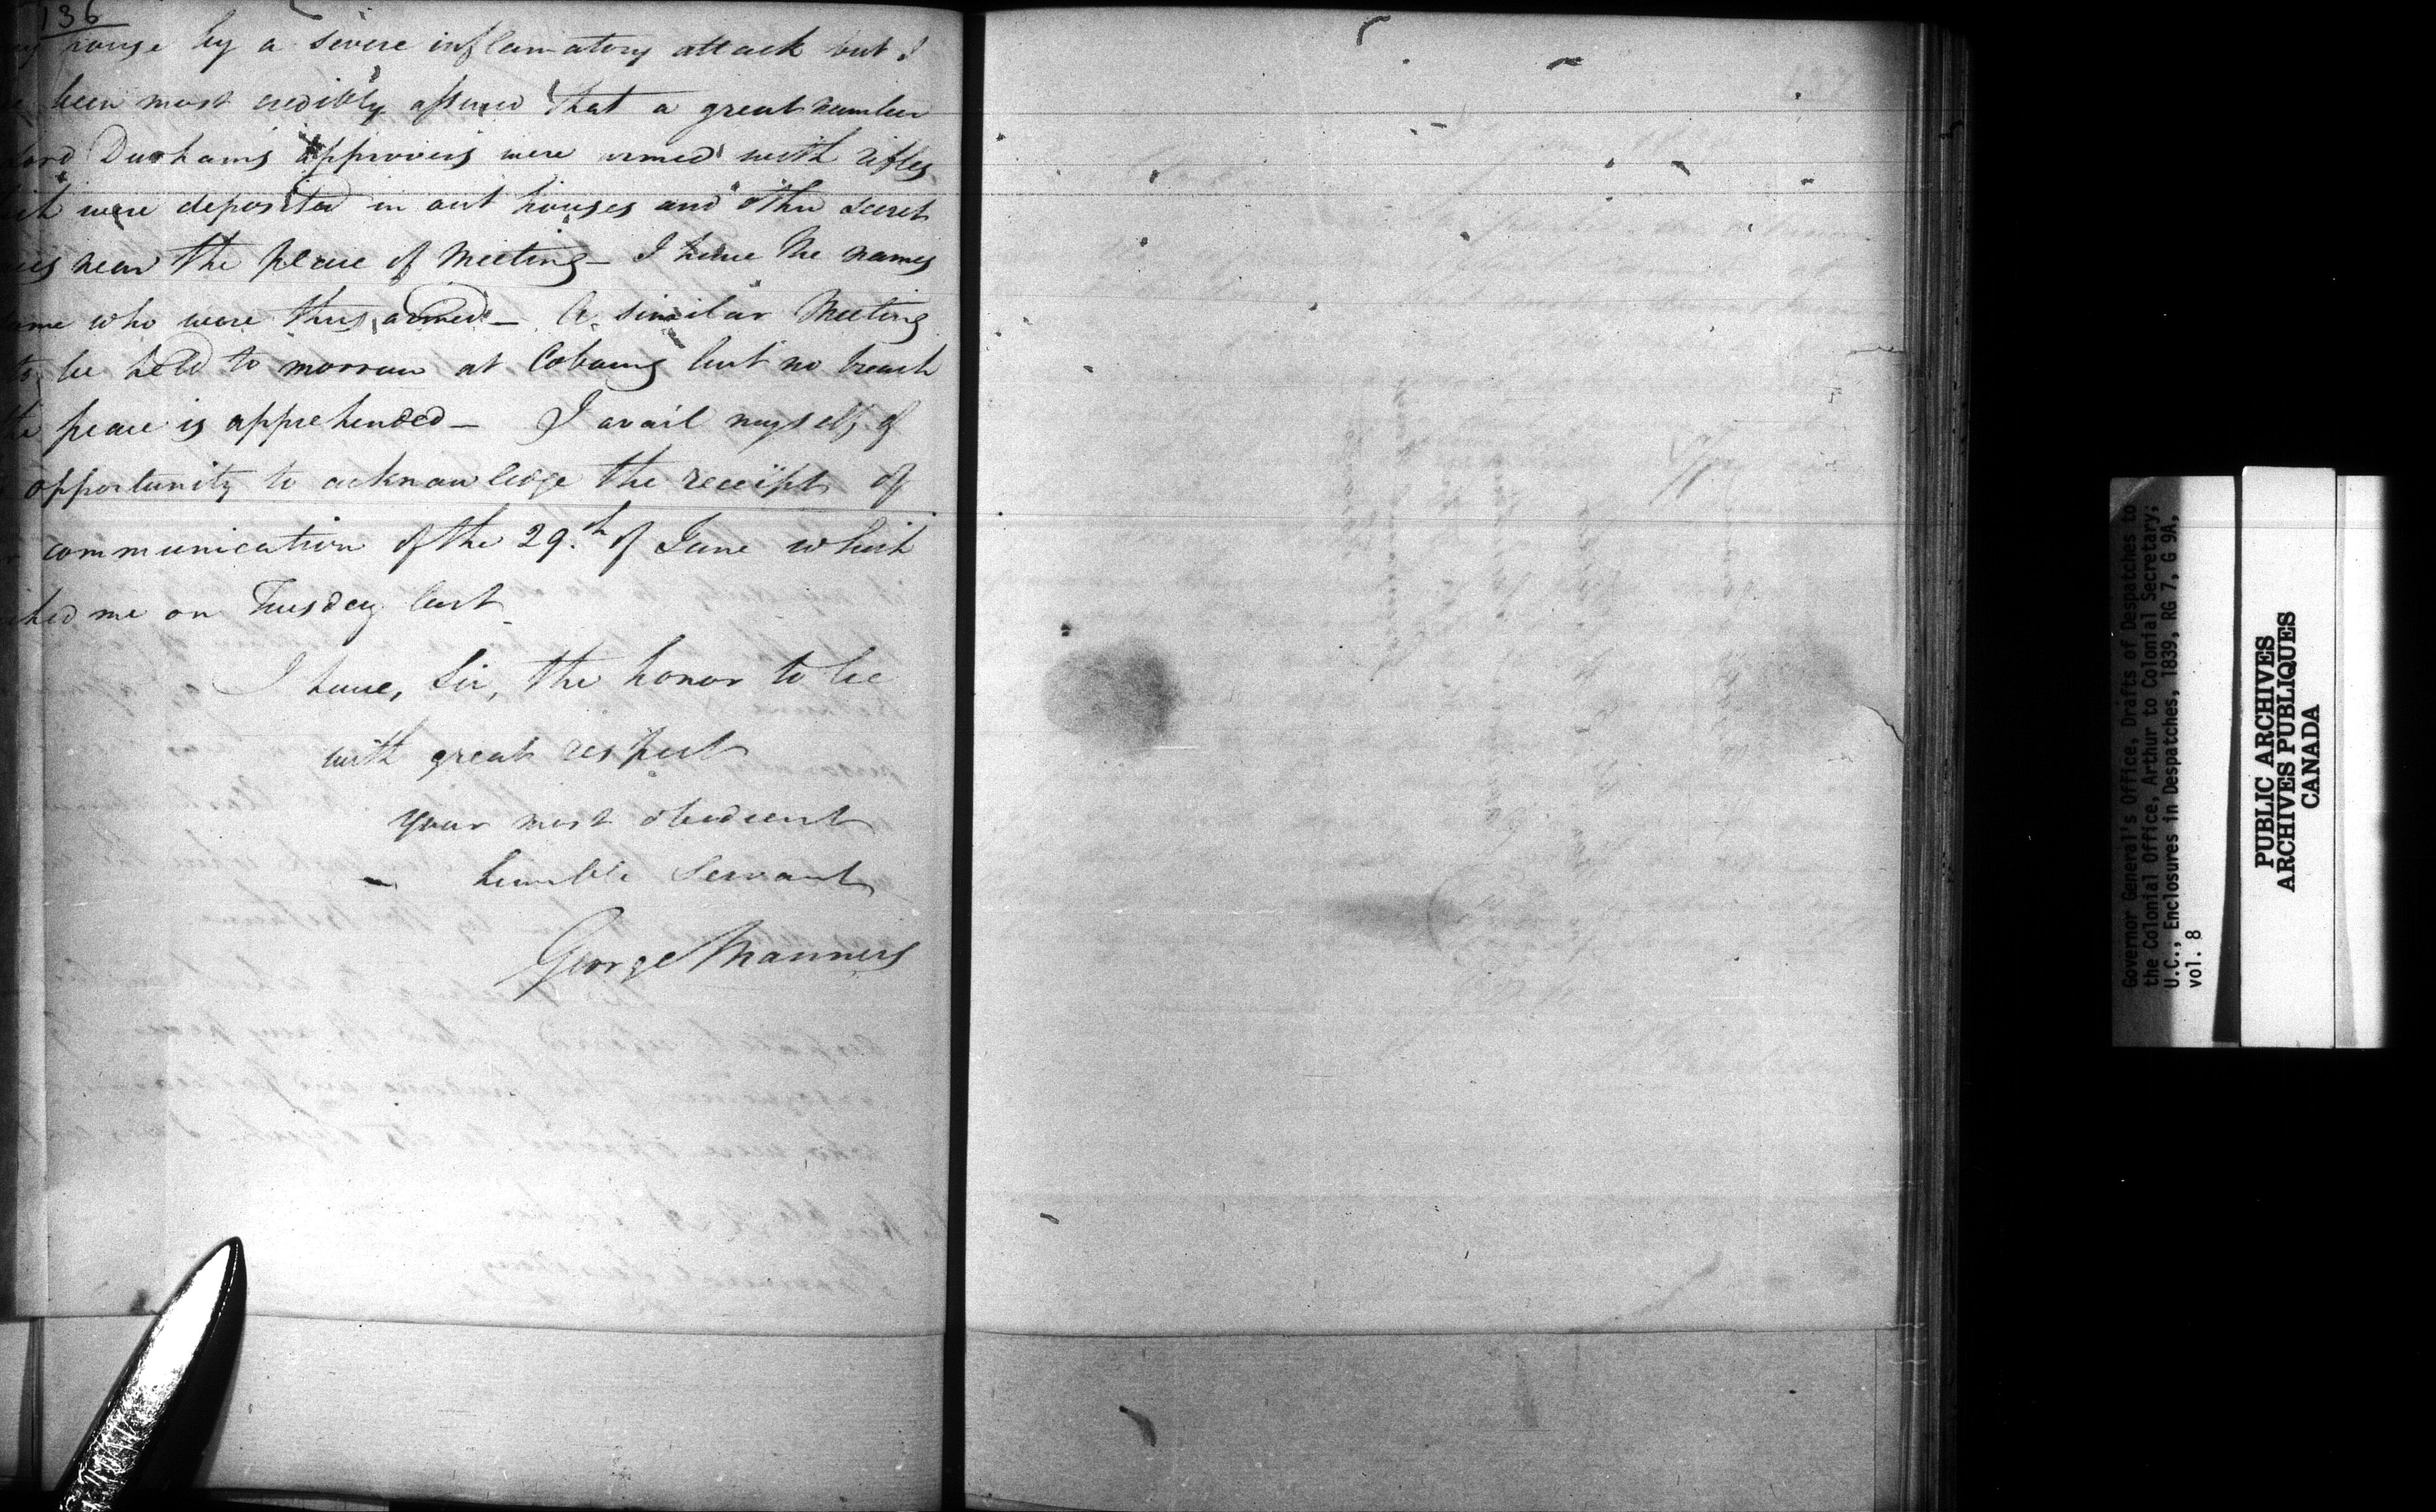 136
house by a severe inflamatory attack but I
been most credibly assured that a great number
Lord Durham's approvers were armed with rifles
were deposited in out houses and other secret
near the place of Meeting – I have the names
some who were thus armed – A similar Meeting
to be held to morrow at Cobourg but no breach
the peace is apprehended – I avail myself of
opportunity to acknowledge the receipt of
communication of the 29.th of June which
me on Tuesday last
I have, Sir, the honor to be
with great respect
your most obedient
humble Servant
George Manners
Governor General's Office, Drafts of Despatches to
the Colonial Office, Arthur to Colonial Secretary;
U.C.; Enclosures in Despatches, 1839, RG 7, G 9A,
vol. 8
PUBLIC ARCHIVES
ARCHIVES PUBLIQUES
CANADA